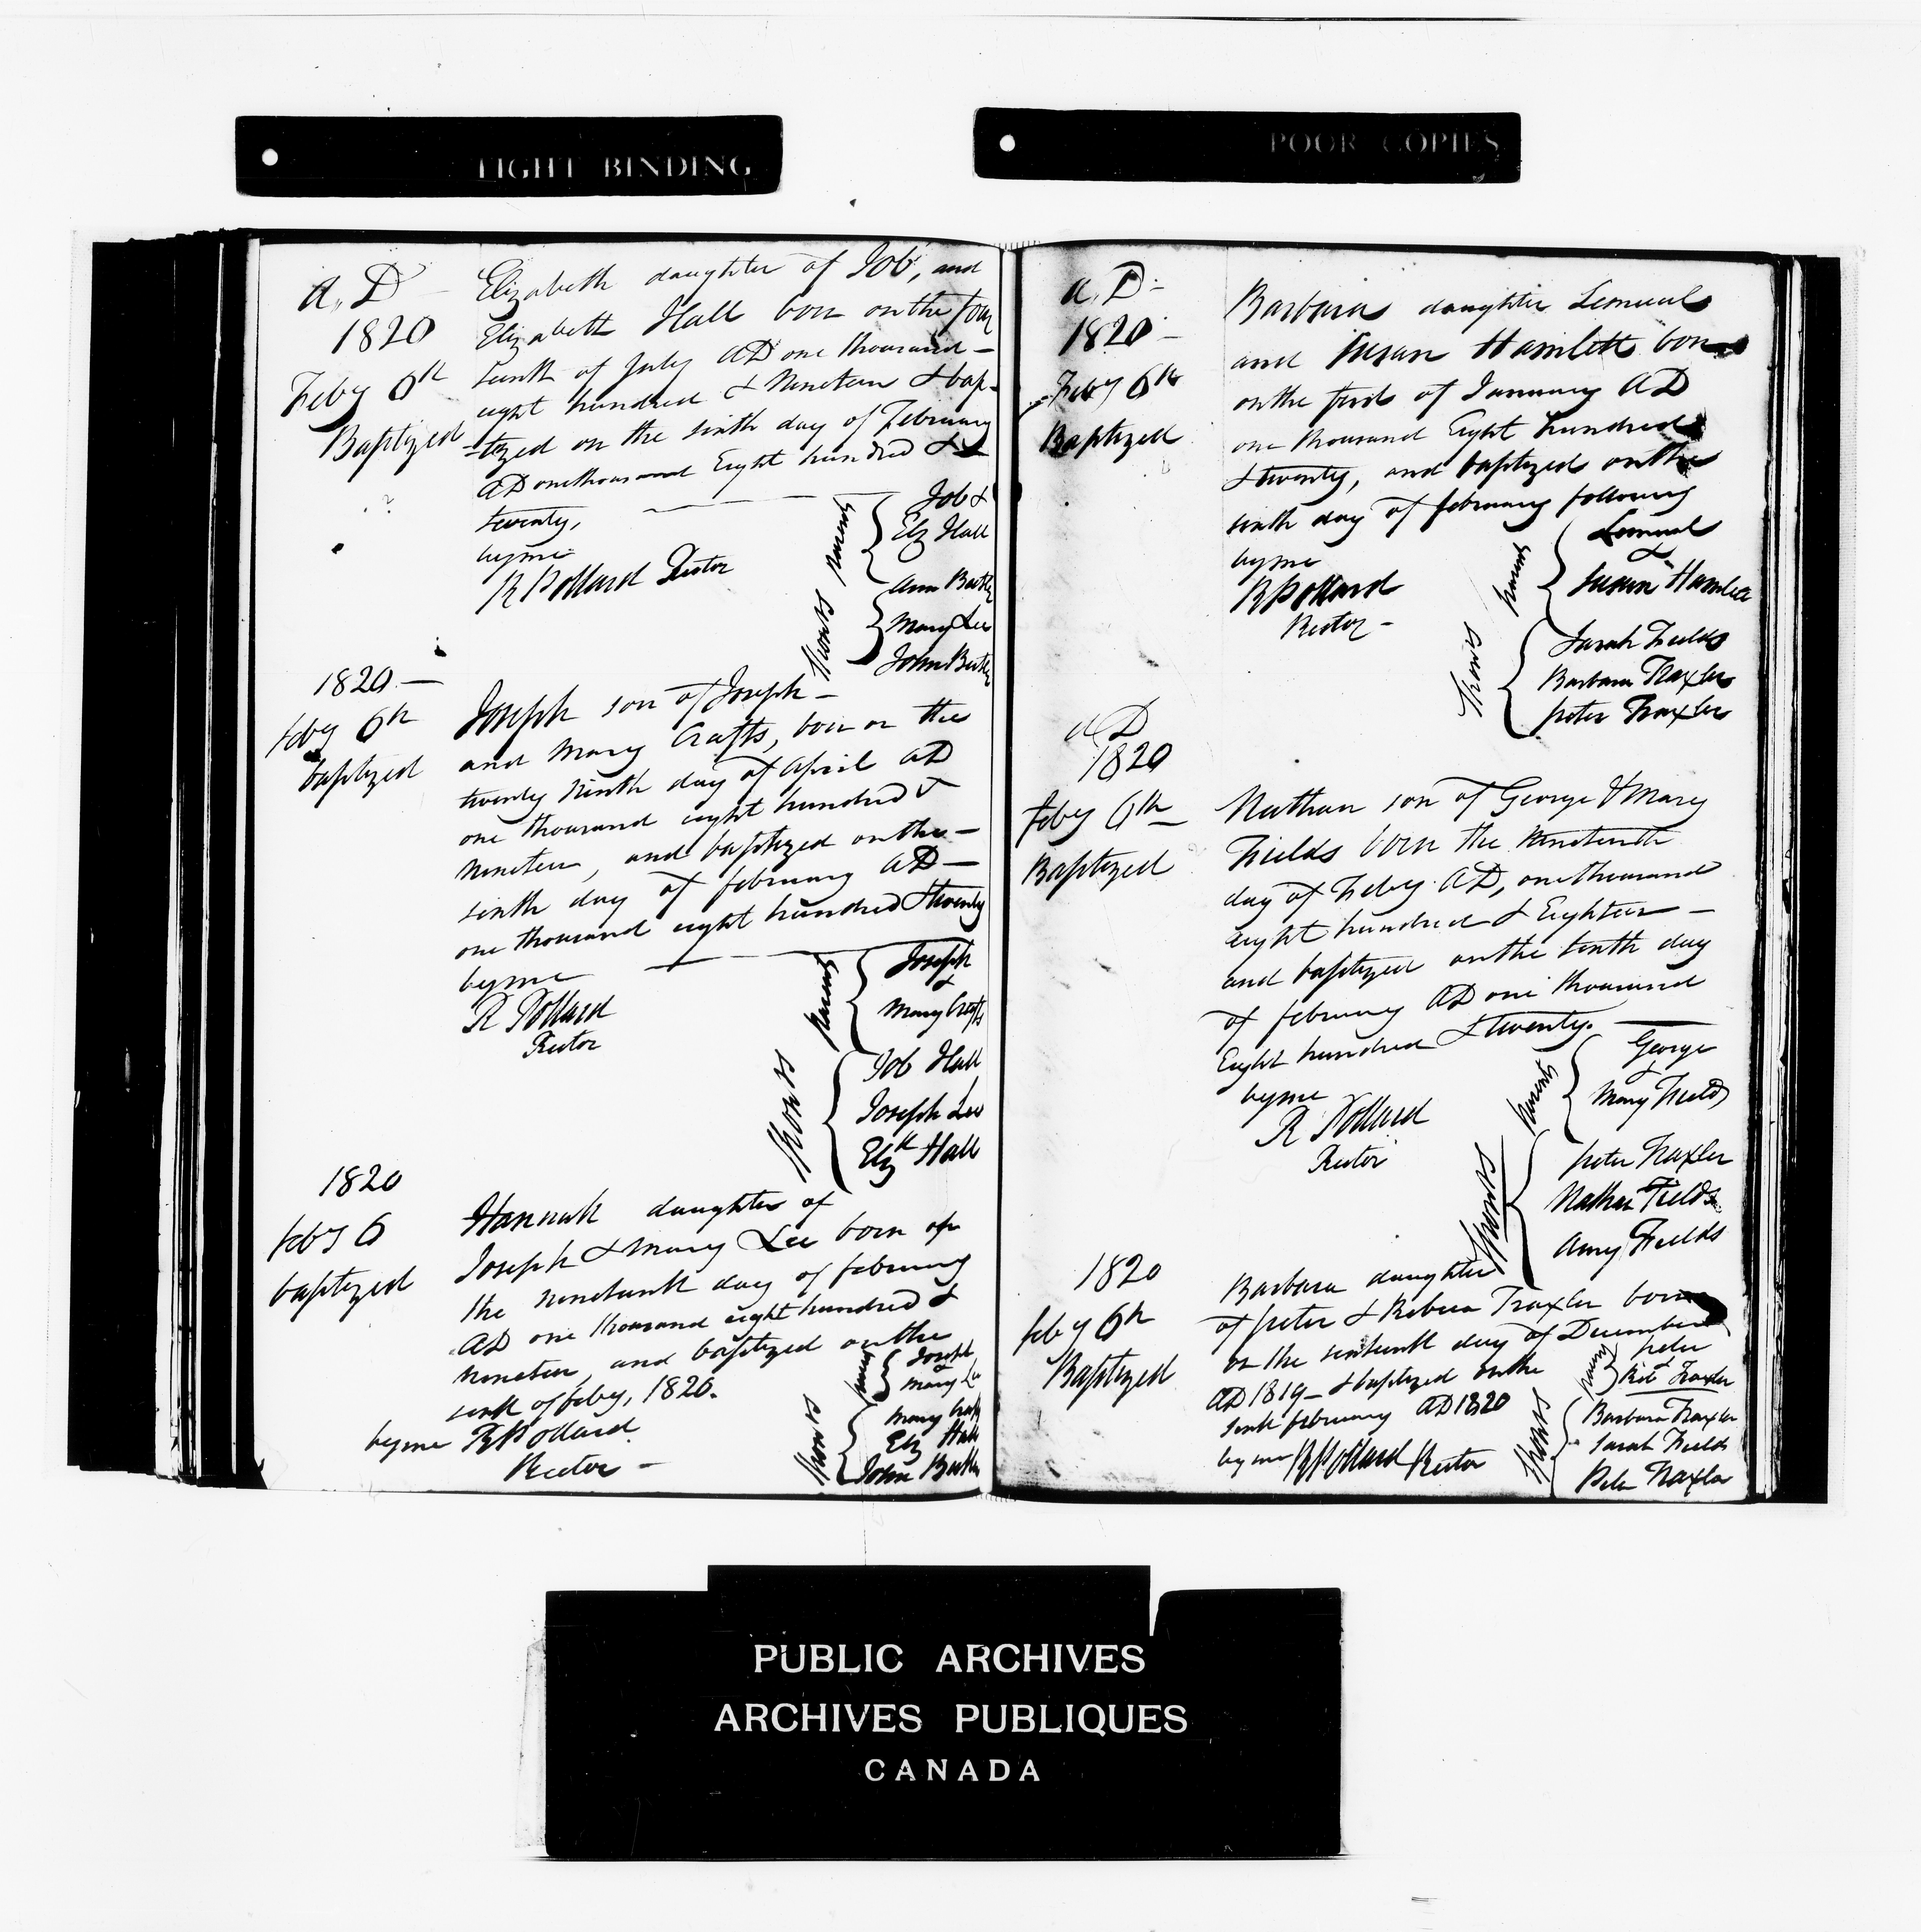 TIGHT BINDING
POOR COPIES
A. D
1820
Feby 6th
Baptized
Elizabeth daughter of Job, and
Elizabeth Hall born on the four
teenth of July AD one thousand –
eight hundred & Nineteen & bap-
-tized on the sixth day of February
AD one thousand Eight hundred &
twenty,
by me
R Pollard Rector
parents
Job &
Eliz Hall
Sponsors
Ann
Mary Lee
John
1820 –
Feby 6th
baptized
Joseph son of Joseph –
and Mary Crafts, born on the
twenty ninth day of April AD
one thousand eight hundred &
nineteen, and baptized on the –
sixth day of february AD –
one thousand eight hundred & twenty
by me
R Pollard
Rector
parents
Joseph
&
Mary Crafts
Sponsors
Job Hall
Joseph Lee
Elizth Hall
1820
Feby 6
baptized
Hannah daughter of
Joseph & Mary Lee born on
the nineteenth day of february
AD one thousand eight hundred &
nineteen, and baptized on the
sixth of feby, 1820.
by me R Pollard
Rector –
parents
Joseph
&
Mary Lee
Sponsors
Mary Crafts
Eliz Hall
John
A. D-
1820 -
Feby 6th
Baptized
Barbara daughter Lemuel
and Susan Hamlett born
on the first of January AD
one thousand Eight hundred
& twenty, and baptized on the
sixth day of february following
by me
R Pollard
Rector –
parents
Lemuel
&
Susan Hamlett
Sponsors
Sarah Fields
Barbara Traxler
peter Traxler
A D
1820
feby 6th
Baptized
Nathan son of George & Mary
Fields born the Nineteenth
day of Feby. AD, one thousand
eight hundred & Eighteen –
and baptized on the tenth day
of february AD one thousand
Eight hundred & twenty.
by me
R Pollard
Rector
parents
George
&
Mary Fields
Sponsors
peter Traxler
Nathan Fields
Amy Fields
1820
feby 6th
Baptized
Barbara daughter
of peter & Rebeca Traxler born
on the sixteenth day of December
AD 1819 – & baptized on the
sixth february AD 1820
by me R Pollard Rector
parents
peter
&
Reb Traxler
Sponsors
Barbara Traxler
Sarah Fields
Peter Traxler
PUBLIC ARCHIVES
ARCHIVES PUBLIQUES
CANADA